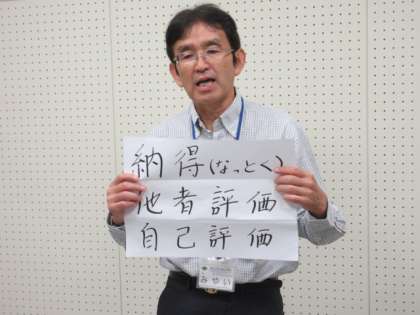 納得(なっとく)
他者評価
自己評価
みやい